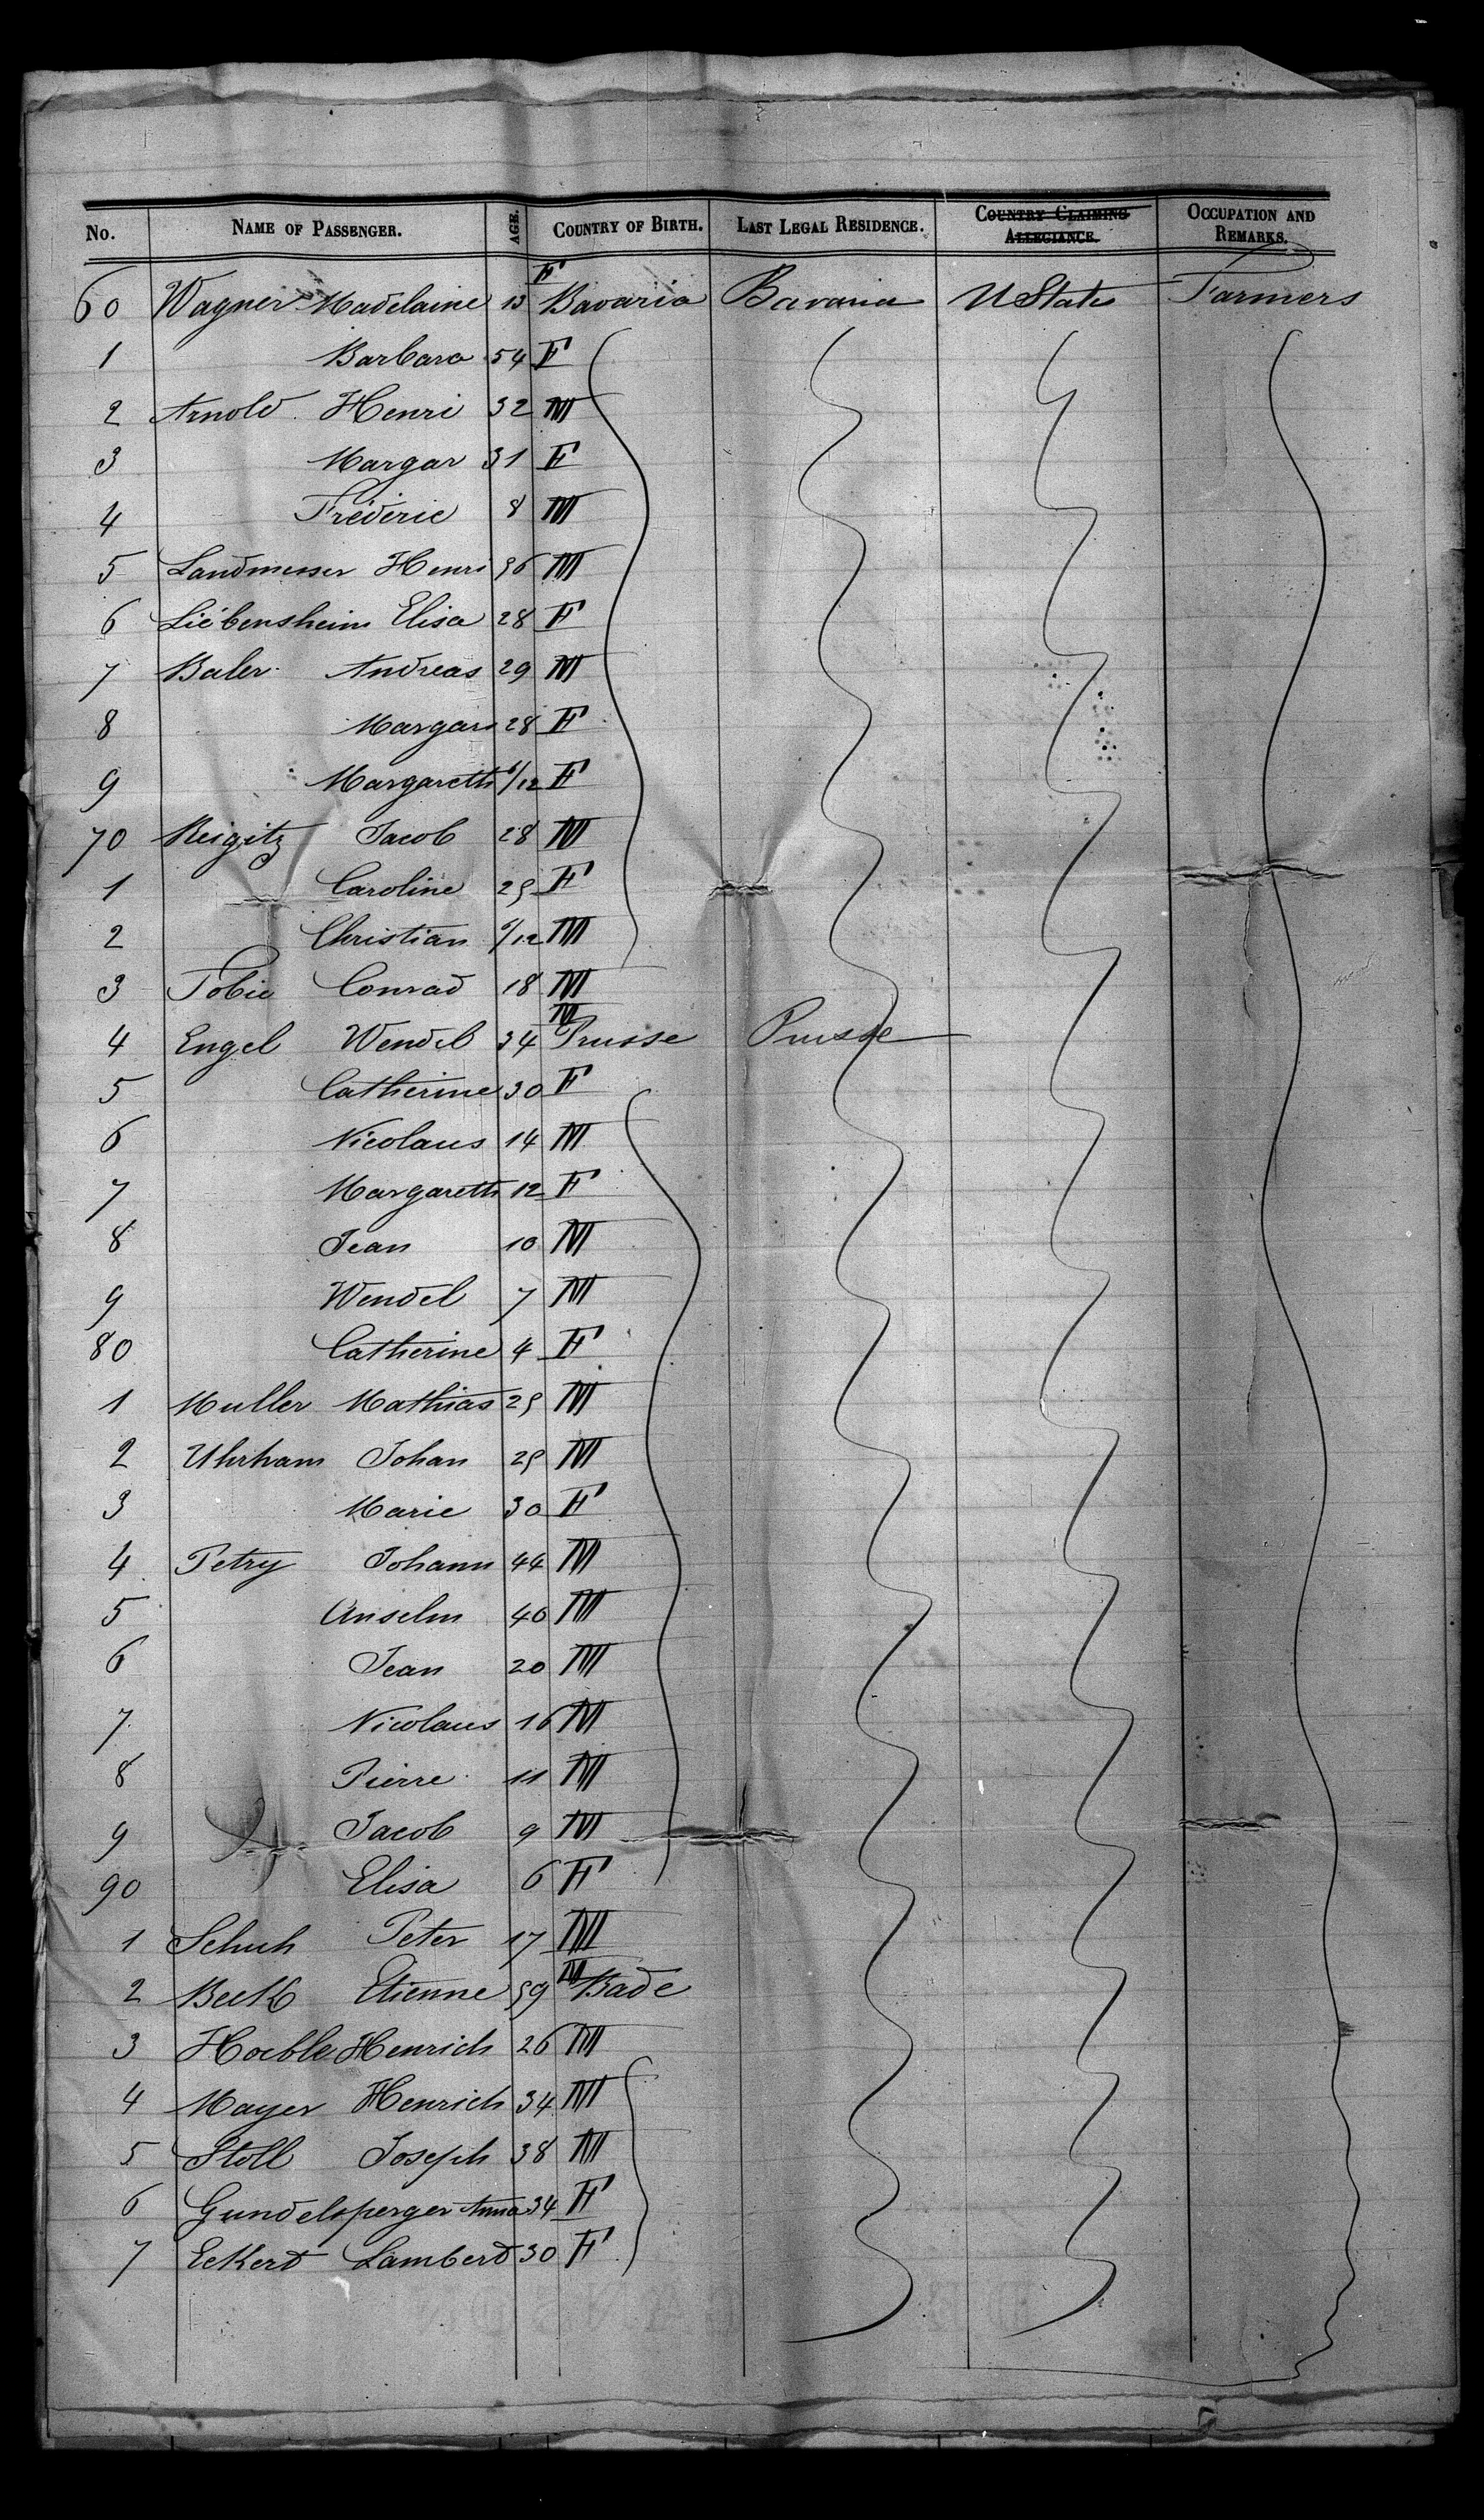 No. NAME OF PASSENGER. AGE. COUNTRY OF BIRTH. LAST LEGAL RESIDENCE. COUNTRY CLAIMING ALLEGIANCE. OCCUPATION AND REMARKS.
60 Wagner Madelaine 13 F Bavaria Bavaria U States Farmers
1 Barbara 54 F
2 Arnold Henri 32 M
3 Margar 31 F
4 Fréderic 8 M
5 Landmesser Henri 36 M
6 Liébensheim Elisa 28 F
7 Baler Andreas 29 M
8 Margar 28 F
9 Margareth 6/12 F
70 Reigitz Jacob 28 M
1 Caroline 25 F
2 Christian 6/12 M
3 Tobie Conrad 18 M
4 Engel Wendel 34 M Prusse Prusse
5 Catherine 30 F
6 Nicolaus 14 M
7 Margareth 12 F
8 Jean 10 M
9 Wendel 7 M
80 Catherine 4 F
1 Muller Mathias 25 M
2 Uhrham Johan 25 M
3 Marie 30 F
4 Petry Johann 44 M
5 Anselm 40 M
6 Jean 20 M
7 Nicolaus 16 M
8 Pierre 11 M
9 Jacob 9 M
90 Elisa 6 F
1 Schuh Peter 17 M
2 Beck Etienne 59 M Bade
3 Hoeble Henrich 26 M
4 Mayer Henrich 34 M
5 Stoll Joseph 38 M
6 Gundelsperger Anna 34 F
7 Eckerd Lamberd 30 F